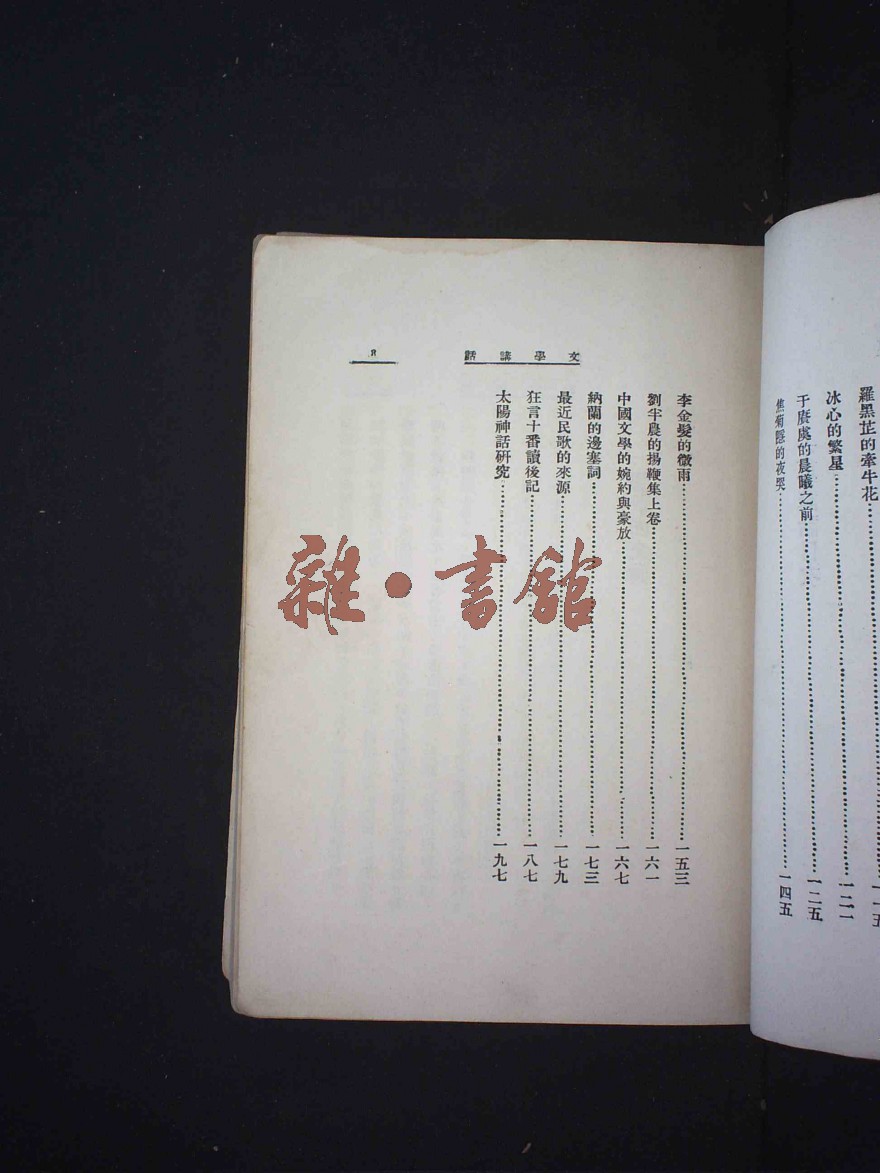 羅黑芷的牽牛花……一一五
冰心的繁星……一二一
于賡虞的晨曦之前……一二五
焦菊隱的夜哭……一四五
文學講話
李金髮的微雨……一五三
劉半農的揚鞭集上卷……一六一
中國文學的婉約與豪放……一六七
納蘭的邊塞詞……一七三
最近民歌的來源……一七九
狂言十番讀後記……一八七
太陽神話研究……一九七
雜·書館